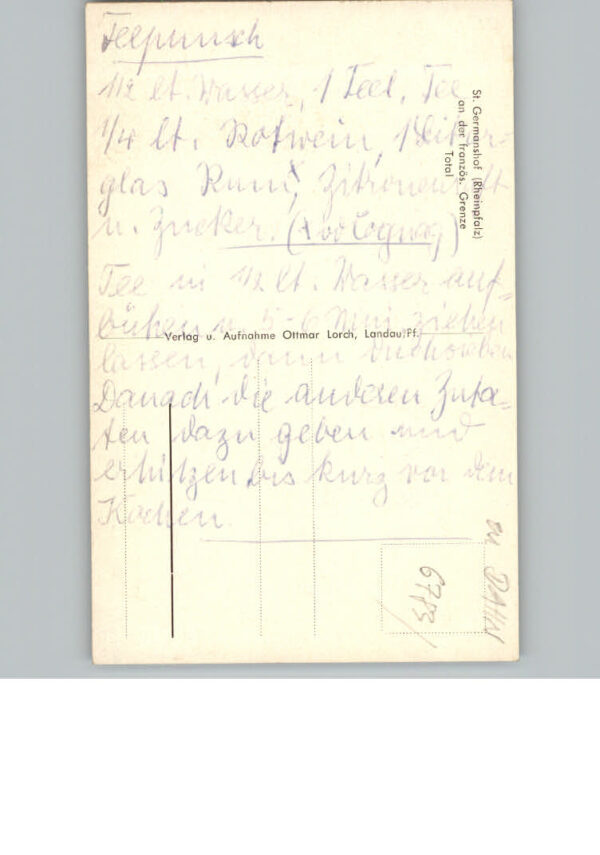 Teepunsch
1/2 lt. Wasser, 1 Teel. Tee
1/4 lt. Rotwein, 1
glas Rum, Zitronensaft
u. Zucker. (Cognag)
Tee in 1/2 lt. Wasser auf-
brühen u. 5-6 Min. ziehen
lassen, dann durchsieben
Danach die anderen Zuta-
ten dazu geben und
erhitzen bis kurz vor dem
Kochen.
St. Germanshof (Rheinpfalz)
an der französ. Grenze
Total
Verlag u. Aufnahme Ottmar Lorch, Landau/Pf.
6783
zu DAHN